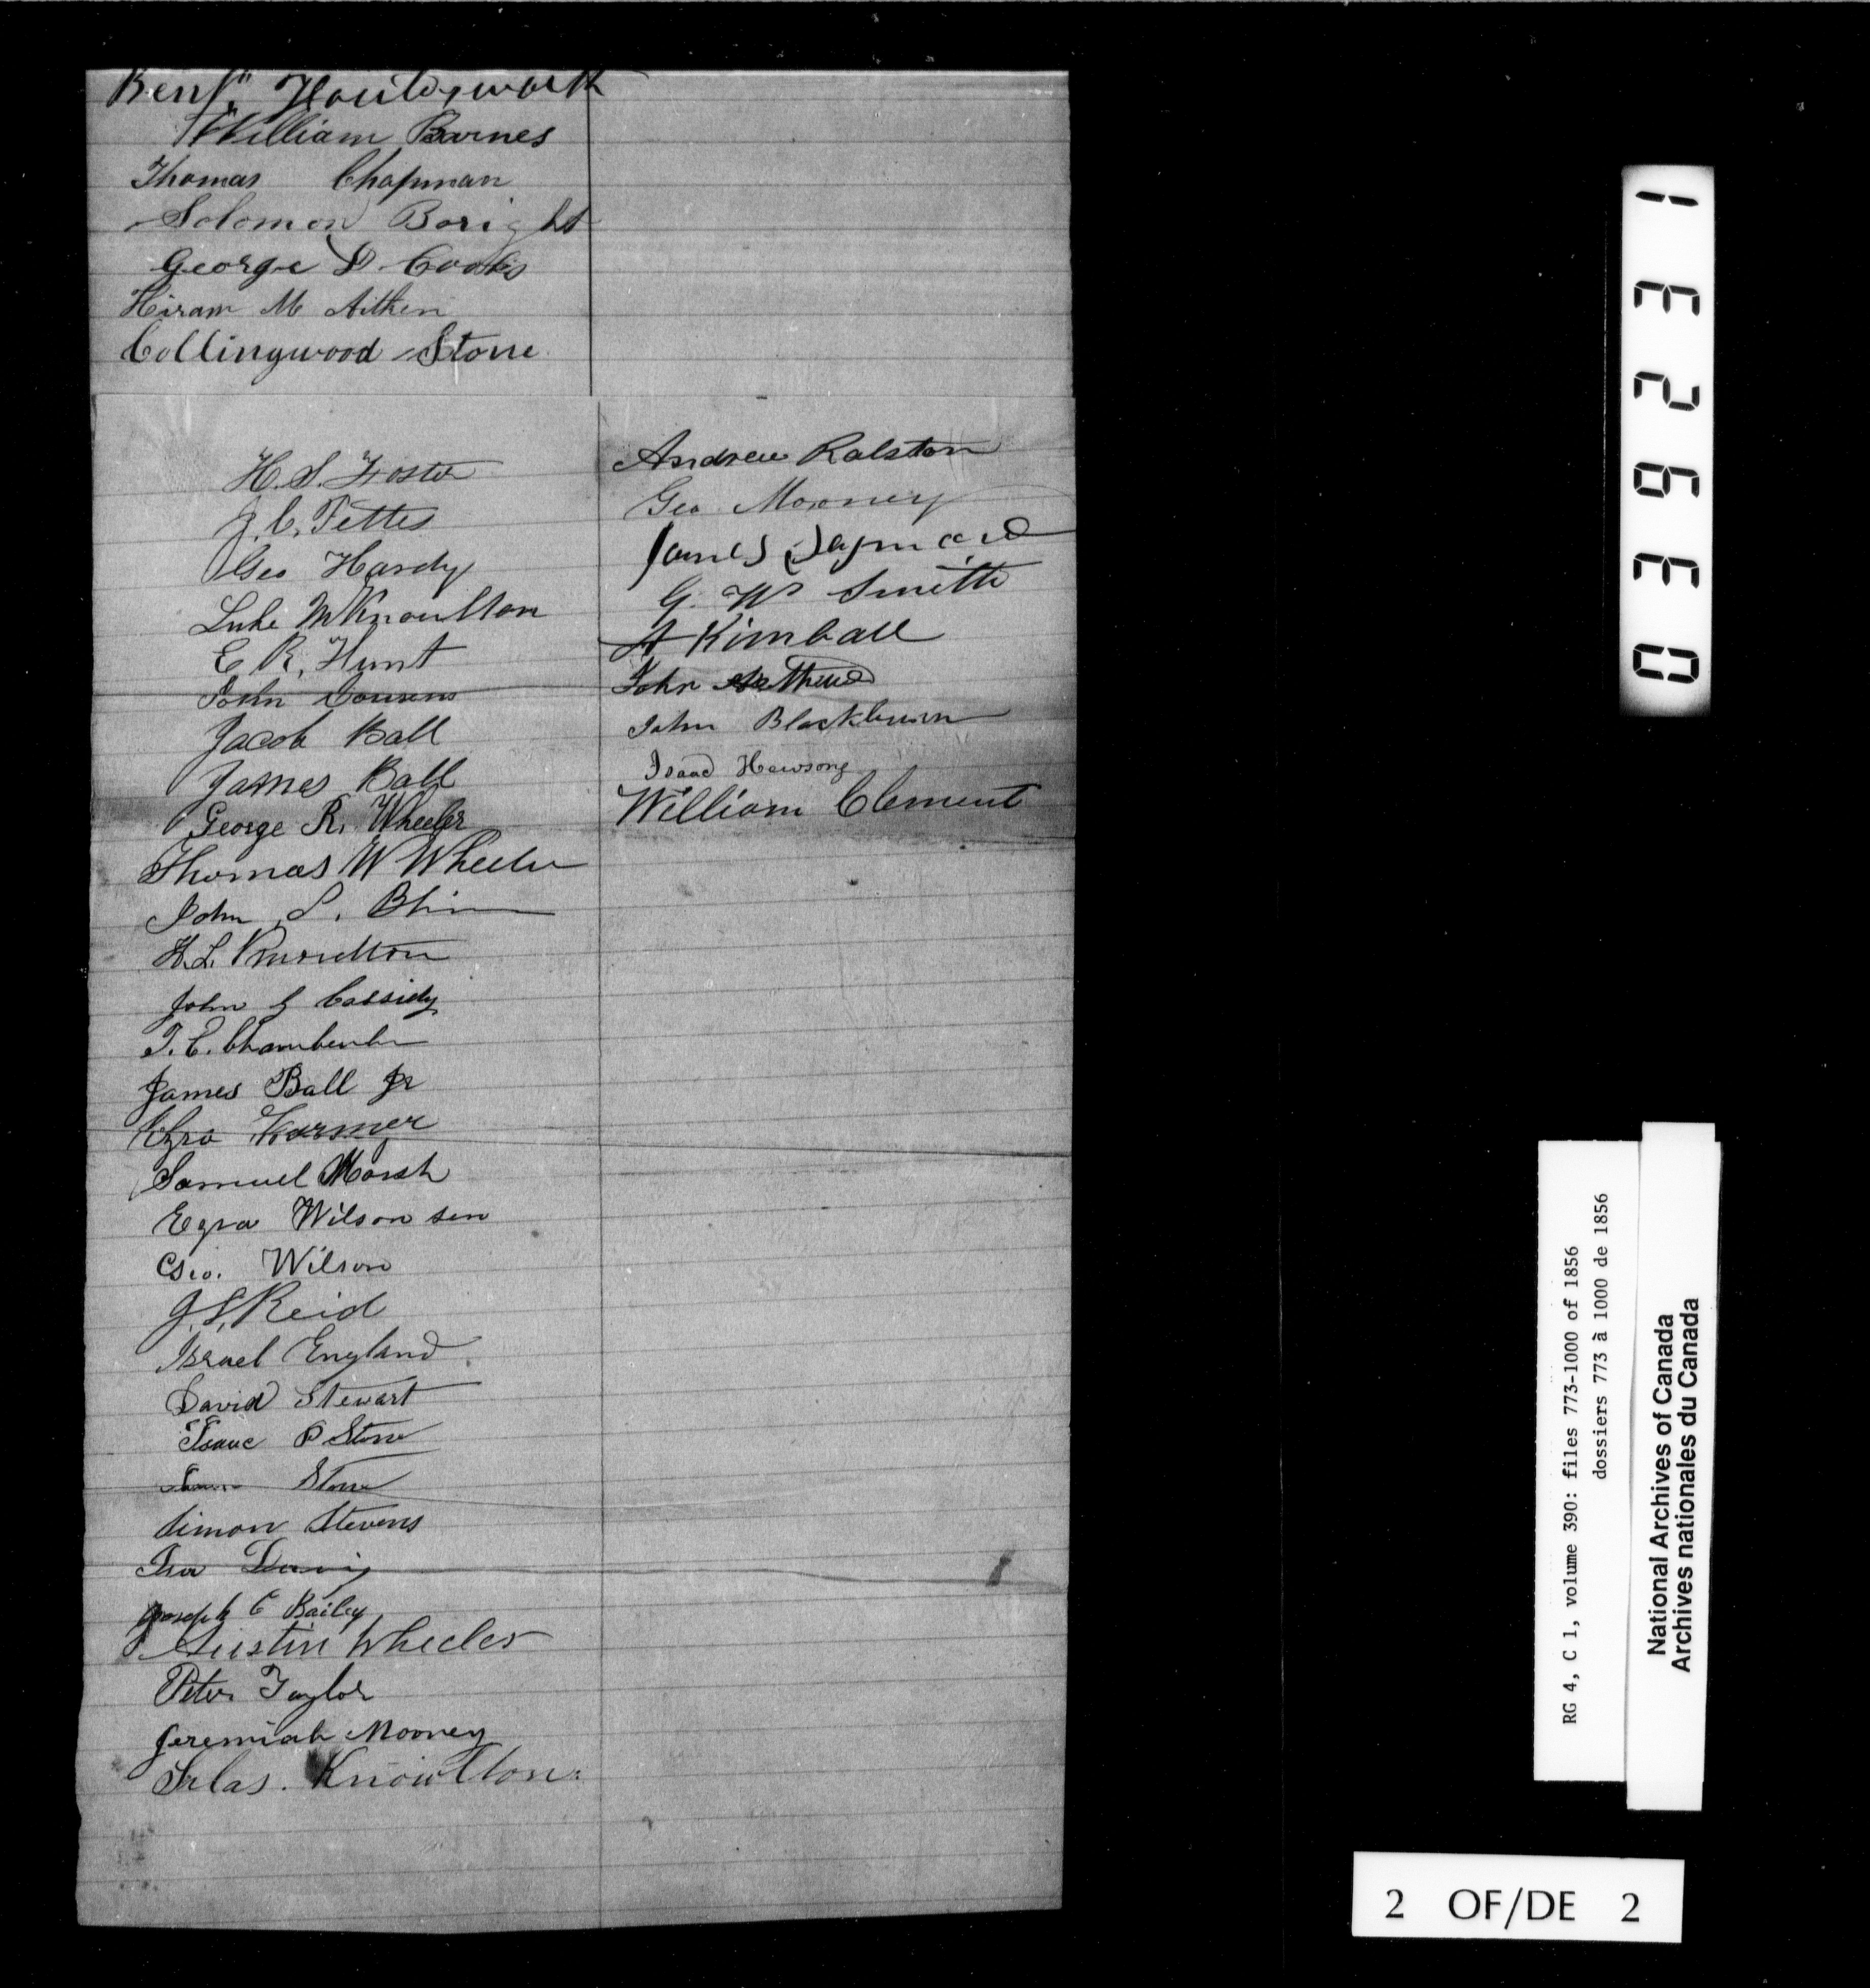 Benj.n Houldsworth
William Barnes
Thomas Chapman
Solomon Boright
George D. Cooks
Hiram M Aitken
Collingwood Stone
H. S. Foster
J. C. Pettes
Geo Hardy
Luke M Knowlton
E R. Hunt
John Cousens
Jacob Ball
James Ball
George R. Wheeler
Thomas W Wheeler
John S. Blinn
H. L. Knowlton
John G Cassidy
T. C. Chamberlin
James Ball Jr
Ezra Karmer
Samuel Marsh
Ezra Wilson sen
Geo. Wilson
J. S. Reid
Israel England
David Stewart
Isaac P Stone
Stone
Simon Stevens
Isa Davis
Joseph C Bailey
Austin Wheeler
Peter Taylor
Jeremiah Mooney
Silas. Knowlton.
Andrew Ralston
Geo Mooney
James
G. W Smith
A Kimball
John
John Blackburn
Isaac Hewsong
William Clement
03923 1
RG 4, C 1, volume 390: files 773-1000 of 1856
dossiers 773 à 1000 de 1856
National Archives of Canada
Archives nationales du Canada
2 OF/DE 2